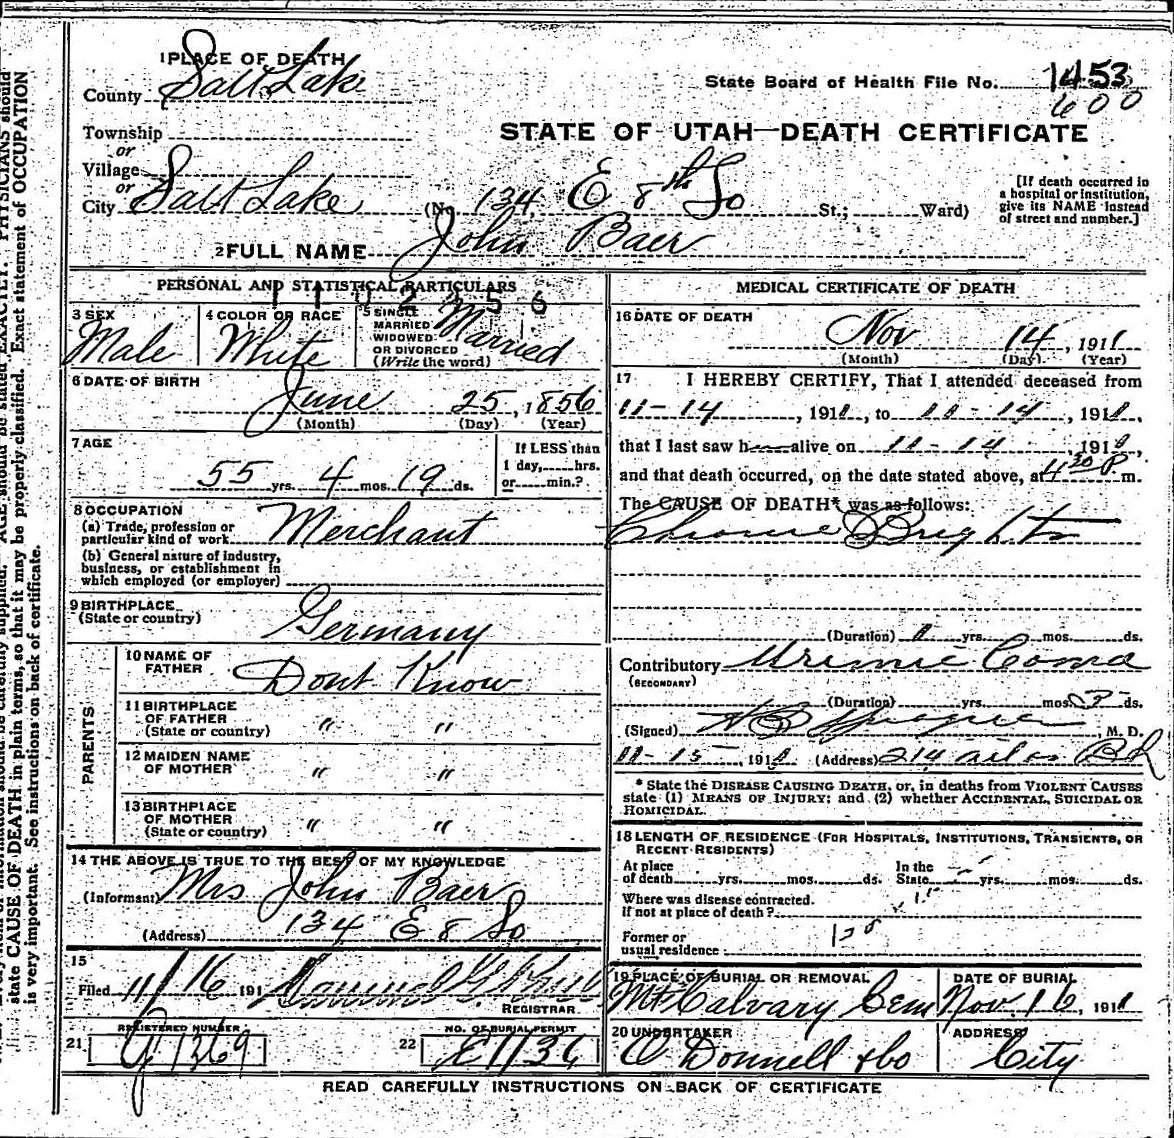 1 PLACE OF DEATH
County Salt Lake
State Board of Health File No. 1453
600
Township
or
Village
or
STATE OF UTAH—DEATH CERTIFICATE
City Salt Lake (No. 134 E 8th So St.; Ward)
[If death occurred in
a hospital or institution,
give its NAME instead
of street and number.]
2 FULL NAME John Baer
PERSONAL AND STATISTICAL PARTICULARS
3 SEX
Male
4 COLOR OR RACE
White
5 SINGLE
MARRIED
WIDOWED
OR DIVORCED
(Write the word)
Married
6 DATE OF BIRTH
June 25, 1856
(Month) (Day) (Year)
7 AGE
55 yrs. 4 mos. 19 ds.
If LESS than
1 day, hrs.
or min.?
8 OCCUPATION
(a) Trade, profession or
particular kind of work Merchant
(b) General nature of industry,
business, or establishment in
which employed (or employer)
9 BIRTHPLACE
(State or country) Germany
PARENTS
10 NAME OF
FATHER Dont Know
11 BIRTHPLACE
OF FATHER
(State or country) " "
12 MAIDEN NAME
OF MOTHER " "
13 BIRTHPLACE
OF MOTHER
(State or country) " "
14 THE ABOVE IS TRUE TO THE BEST OF MY KNOWLEDGE
(Informant) Mrs John Baer
(Address) 134 E 8 So
15
Filed 11/16 191
REGISTRAR
21 REGISTERED NUMBER
G1369
22 NO. OF BURIAL PERMIT
E1136
MEDICAL CERTIFICATE OF DEATH
16 DATE OF DEATH
Nov 14, 1911
(Month) (Day) (Year)
17 I HEREBY CERTIFY, That I attended deceased from
11-14, 1911, to 11-14, 1911,
that I last saw h alive on 11-14, 1911,
and that death occurred, on the date stated above, at 4 30 P m.
The CAUSE OF DEATH* was as follows:
Chronic Brights
(Duration) 1 yrs. mos. ds.
Contributory Uremic Coma
(SECONDARY)
(Duration) yrs. mos. ds.
(Signed) M. D.
11-15, 1911 (Address) 214
* State the DISEASE CAUSING DEATH, or, in deaths from VIOLENT CAUSES
state (1) MEANS OF INJURY; and (2) whether ACCIDENTAL, SUICIDAL OR
HOMICIDAL.
18 LENGTH OF RESIDENCE (FOR HOSPITALS, INSTITUTIONS, TRANSIENTS, OR
RECENT RESIDENTS)
At place
of death yrs. mos. ds.
In the
State yrs. mos. ds.
Where was disease contracted.
if not at place of death?
Former or
usual residence
19 PLACE OF BURIAL OR REMOVAL
Mt Calvary Cem
DATE OF BURIAL
Nov. 16, 1911
20 UNDERTAKER
O Donnell & Co
ADDRESS
City
READ CAREFULLY INSTRUCTIONS ON BACK OF CERTIFICATE
state CAUSE OF DEATH in plain terms, so that it may be properly classified. Exact statement of OCCUPATION
is very important. See instructions on back of certificate.